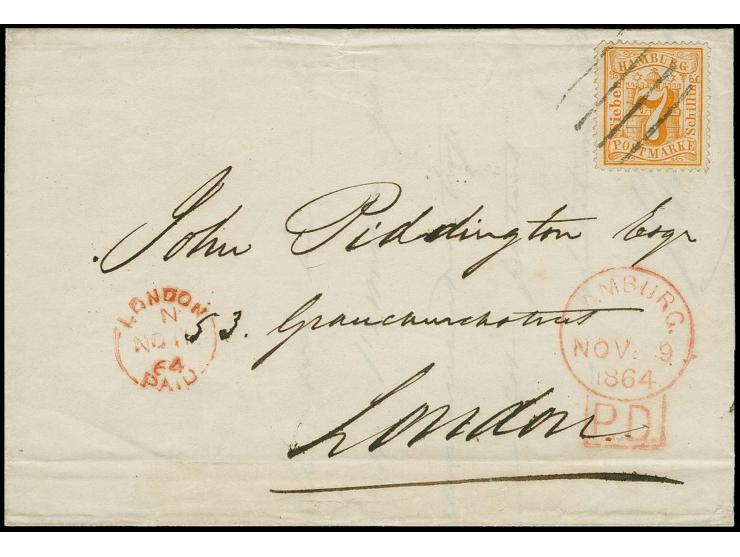 HAMBURG
Sieben
7
Schilling
POSTMARKE
John Piddington Esqr
53. Gracechurchstreet
London
LONDON
N
NO 11
64
PAID
HAMBURG.
NOV. 9
1864
P.D.